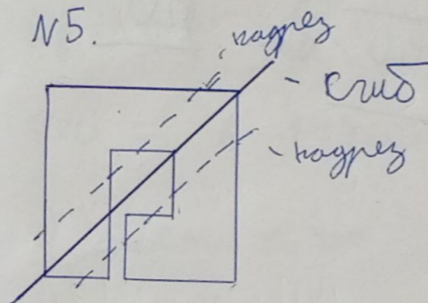 N5.
надрез
сгиб
надрез